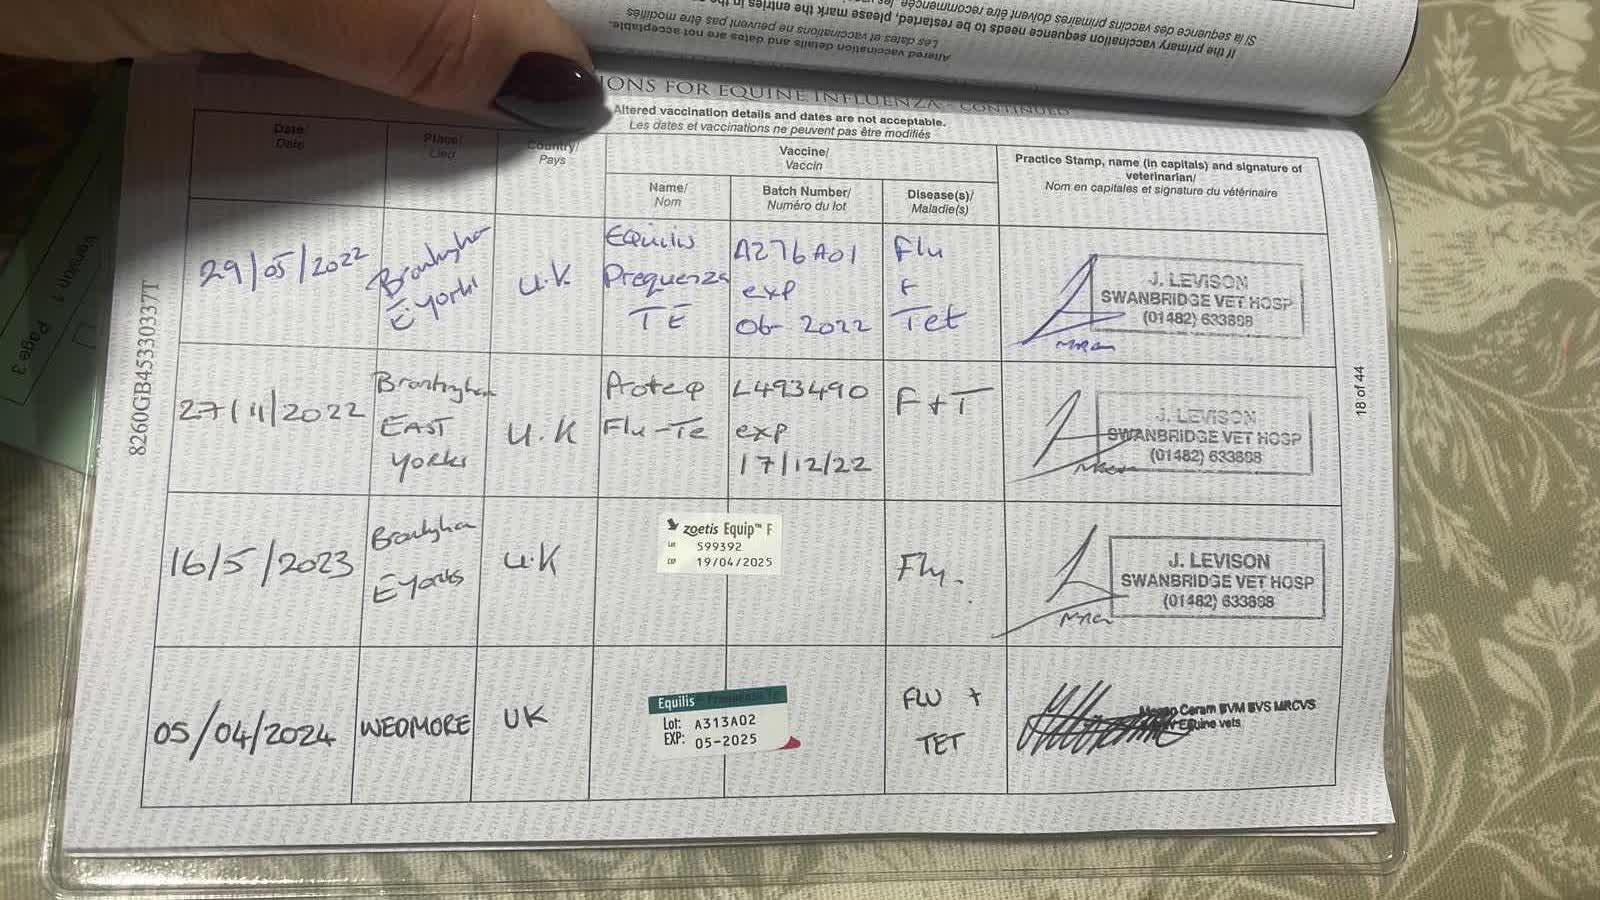 Si la séquence des vaccins primaires doivent être recommencée, les
If the primary vaccination sequence needs to be restarted, please mark the entries in the
Les dates et vaccinations ne peuvent pas être modifiés
Altered vaccination details and dates are not acceptable.
IONS FOR EQUINE INFLUENZA - CONTINUED
Altered vaccination details and dates are not acceptable.
Les dates et vaccinations ne peuvent pas être modifiés
Date/
Date
Place/
Lied
Country/
Pays
Vaccine/
Vaccin
Name/
Nom
Batch Number/
Numéro du lot
Disease(s)/
Maladie(s)
Practice Stamp, name (in capitals) and signature of
veterinarian/
Nom en capitales et signature du vétérinaire
29/05/2022
E Yorks
U.K
Equilis
Prequenza
TE
A276A01
exp
06-2022
Flu
Tet
J. LEVISON
SWANBRIDGE VET HOSP
(01482) 633898
27/11/2022
EAST
Yorks
U.K
Proteq
Flu-Te
L493490
exp
17/12/22
F+T
J. LEVISON
SWANBRIDGE VET HOSP
(01482) 633898
16/5/2023
E Yorks
U.K
zoetis Equip™ F
Lot 599392
EXP 19/04/2025
Flu.
J. LEVISON
SWANBRIDGE VET HOSP
(01482) 633898
05/04/2024
WEDMORE
UK
Equilis
Lot: A313A02
EXP: 05-2025
FLU +
TET
Ceram BVM BVS MRCVS
Equine vets
8260GB45330337T
18 of 44
Version 1
Page 3